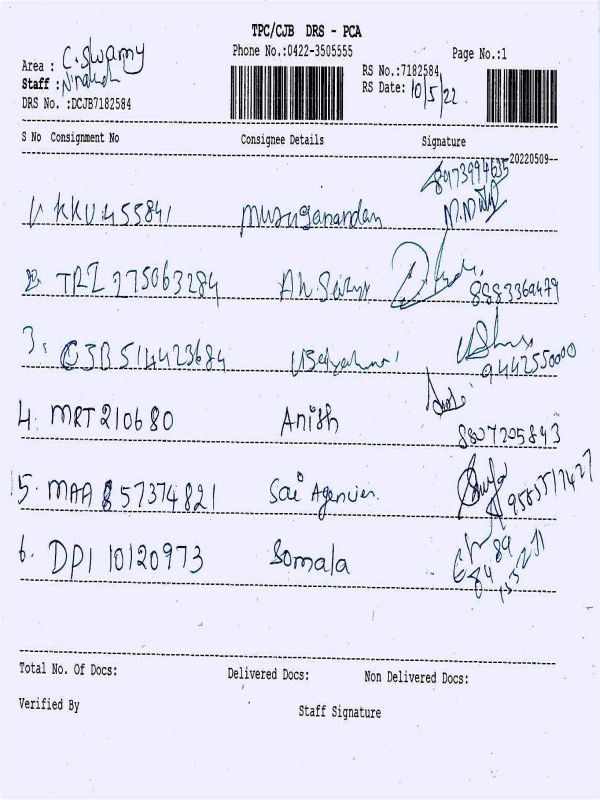 TPC/CJB DRS - PCA
Phone No.:0422-3505555
Page No.:1
Area : C.Swamy
Staff :
DRS No. :DCJB7182584
RS No.:7182584
RS Date: 10/5/22
S No Consignment No Consignee Details Signature
--20220509--
8973994635
1. KKU 455841 Muruganandan
2. TRZ 275063284
8883369479
3. CJB 514423684
9442550000
4. MRT 210680 Anish
8807205843
5. MAA 857374821 Sai Agencies
6. DPI 10120973 Somala
Total No. Of Docs: Delivered Docs: Non Delivered Docs:
Verified By Staff Signature